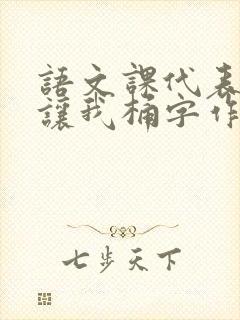 語文課代表
讓我桶字作
七步天下